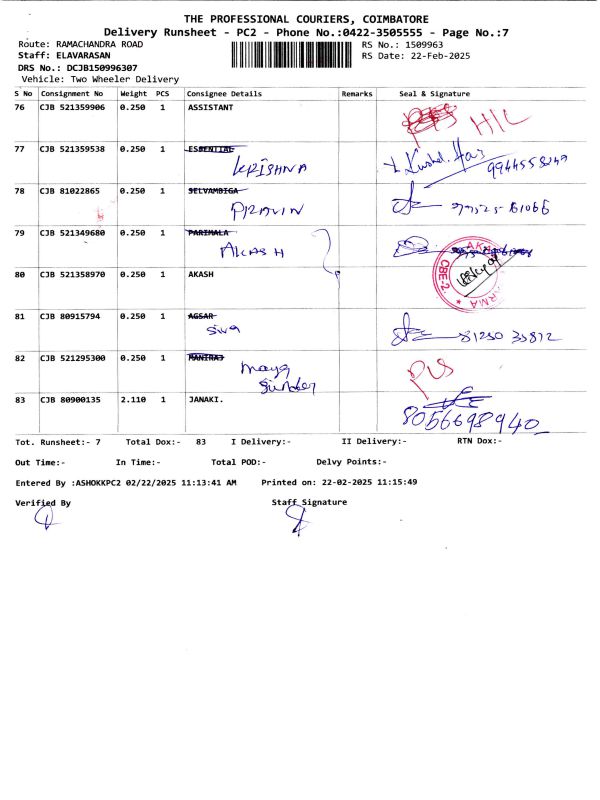 THE PROFESSIONAL COURIERS, COIMBATORE
Delivery Runsheet - PC2 - Phone No.:0422-3505555 - Page No.:7
Route: RAMACHANDRA ROAD RS No.: 1509963
Staff: ELAVARASAN RS Date: 22-Feb-2025
DRS No.: DCJB150996307
Vehicle: Two Wheeler Delivery
S No Consignment No Weight PCS Consignee Details Remarks Seal & Signature
76 CJB 521359906 0.250 1 ASSISTANT H/L
77 CJB 521359538 0.250 1 ESSENTIAL
KRISHNA
78 CJB 81022865 0.250 1 SELVAMBIGA
PRAVIN
79 CJB 521349680 0.250 1 PARIMALA
AKASH
80 CJB 521358970 0.250 1 AKASH CBE-2
81 CJB 80915794 0.250 1 AGSAR
Siva 81250 33812
82 CJB 521295300 0.250 1 MANIRAJ
Maya
Sunder
83 CJB 80900135 2.110 1 JANAKI.
8056698940
Tot. Runsheet:- 7 Total Dox:- 83 I Delivery:- II Delivery:- RTN Dox:-
Out Time:- In Time:- Total POD:- Delvy Points:-
Entered By :ASHOKKPC2 02/22/2025 11:13:41 AM Printed on: 22-02-2025 11:15:49
Verified By Staff Signature